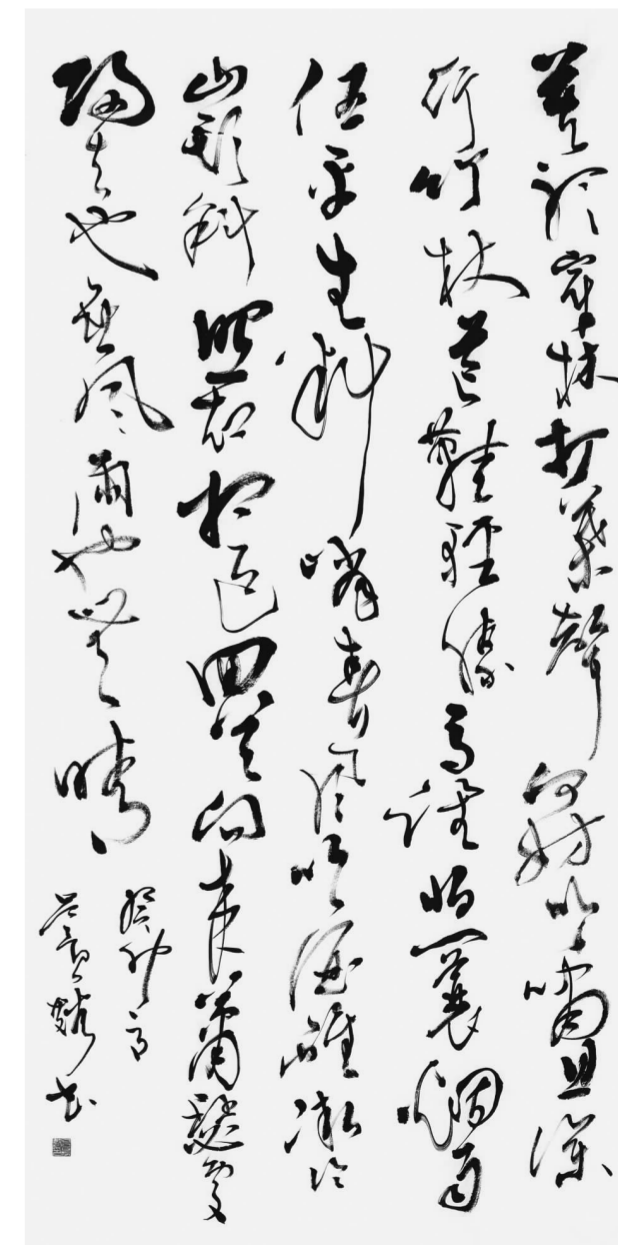 莫聽穿林打葉聲何妨吟嘯且徐
行竹杖芒鞋輕勝馬誰怕一蓑烟雨
任平生料峭春風吹酒醒微冷
山頭斜照却相迎回首向來蕭瑟處
歸去也無風雨也無晴
癸卯
书